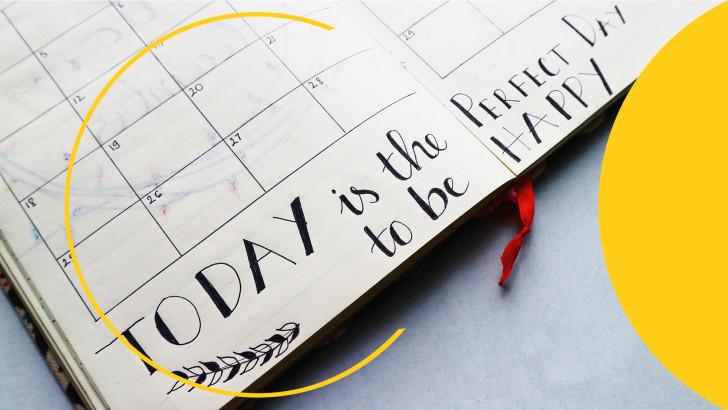 5 6
12
18 19 20 21
25 26 27 28
29
TODAY is the PERFECT DAY
to be HAPPY